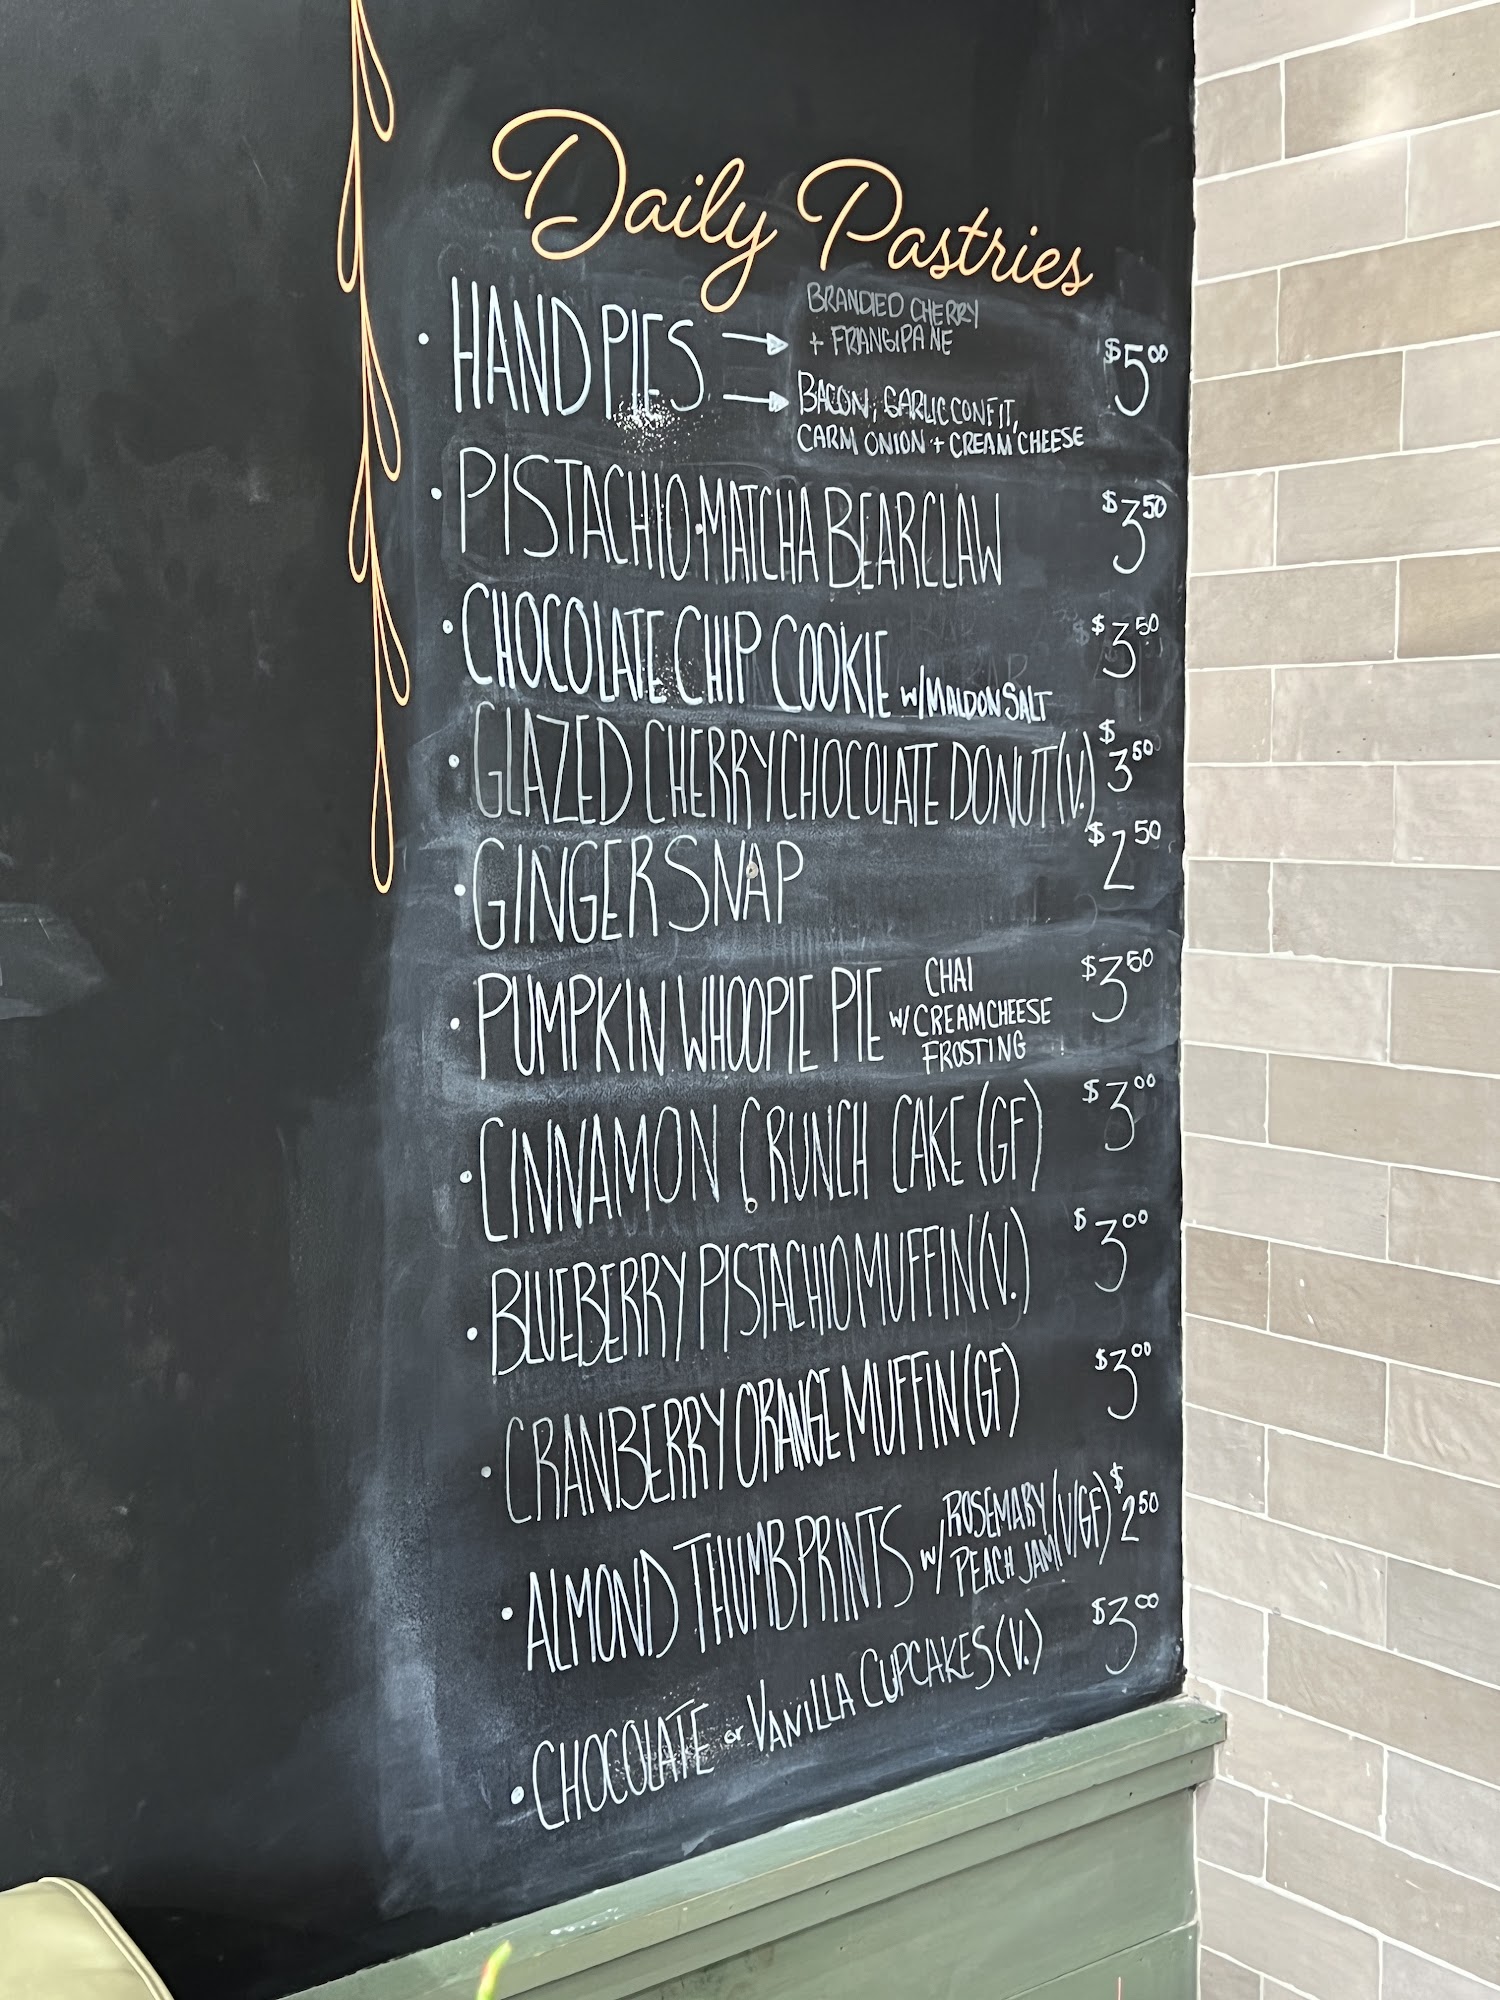 Daily Pastries
• HAND PIES → BRANDIED CHERRY + FRANGIPANE $5.00
→ BACON, GARLIC CONFIT, CARM ONION + CREAM CHEESE
• PISTACHIO·MATCHA BEARCLAW $3.50
• CHOCOLATE CHIP COOKIE w/ MALDON SALT $3.50
• GLAZED CHERRY CHOCOLATE DONUT (V.) $3.50
• GINGER SNAP $2.50
• PUMPKIN WHOOPIE PIE w/ CHAI CREAM CHEESE FROSTING $3.50
• CINNAMON CRUNCH CAKE (GF) $3.00
• BLUEBERRY PISTACHIO MUFFIN (V.) $3.00
• CRANBERRY ORANGE MUFFIN (GF) $3.00
• ALMOND THUMBPRINTS w/ ROSEMARY PEACH JAM (V/GF) $2.50
• CHOCOLATE or VANILLA CUPCAKES (V.) $3.00